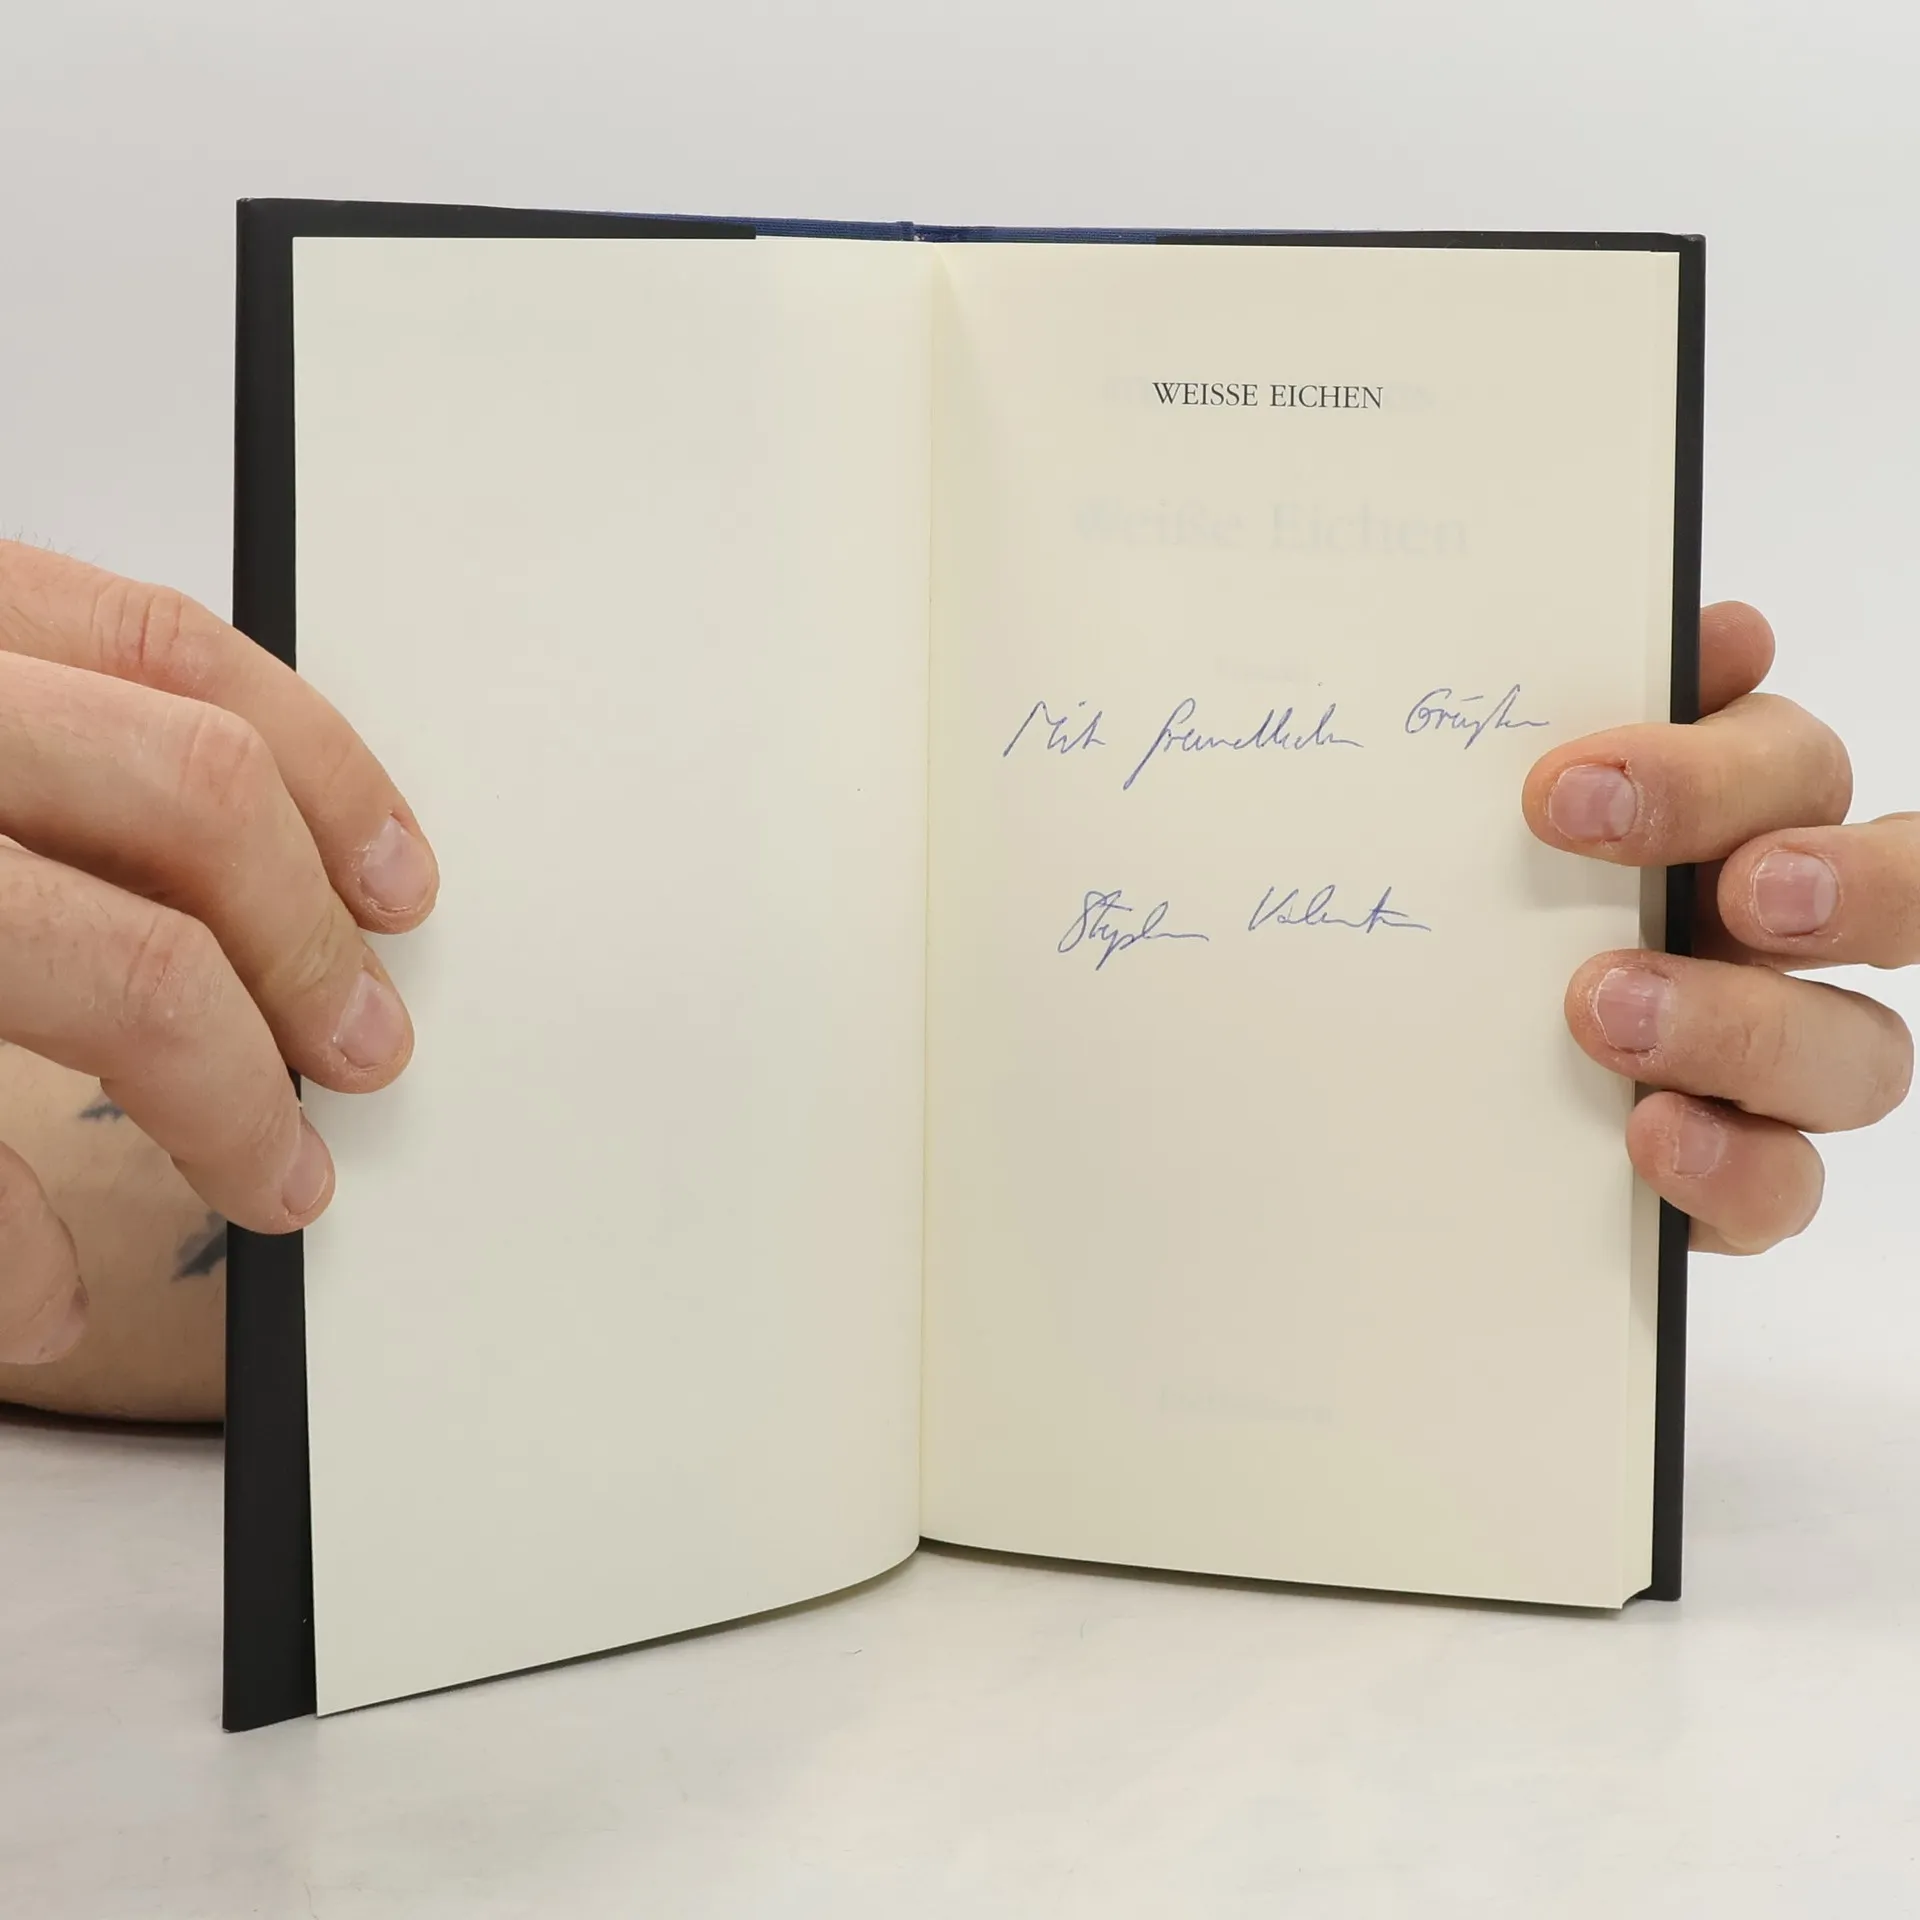 WEISSE EICHEN
Weiße Eichen
Mit freundlichen Grüßen
Stephan Valentin